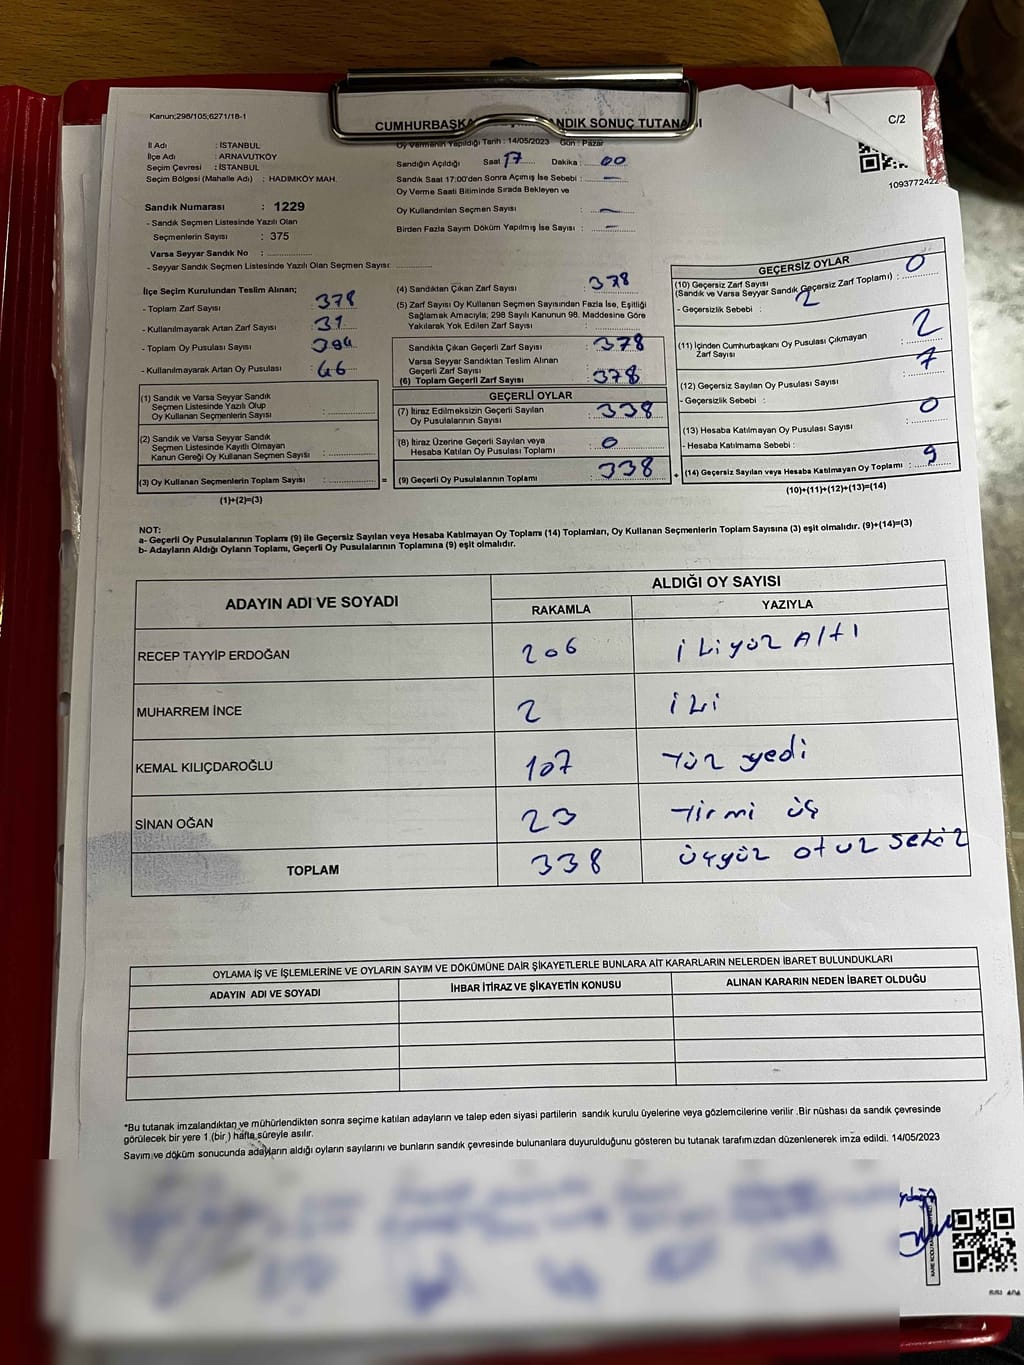 Kanun;298/105;6271/18-1
C/2
CUMHURBAŞKA NDIK SONUÇ TUTANA I
İl Adı : İSTANBUL
İlçe Adı : ARNAVUTKÖY
Seçim Çevresi : İSTANBUL
Seçim Bölgesi (Mahalle Adı) : HADIMKÖY MAH.
Oy Vermenin Yapıldığı Tarih : 14/05/2023 Gün : Pazar
Sandığın Açıldığı Saat 17 Dakika : 00
Sandık Saat 17:00'den Sonra Açımış İse Sebebi : —
Oy Verme Saati Bitiminde Sırada Bekleyen ve
Oy Kullandırılan Seçmen Sayısı : —
Birden Fazla Sayım Döküm Yapılmış İse Sayısı : —
1093772422
Sandık Numarası : 1229
- Sandık Seçmen Listesinde Yazılı Olan
Seçmenlerin Sayısı : 375
Varsa Seyyar Sandık No :
- Seyyar Sandık Seçmen Listesinde Yazılı Olan Seçmen Sayısı:
İlçe Seçim Kurulundan Teslim Alınan;
- Toplam Zarf Sayısı : 378
- Kullanılmayarak Artan Zarf Sayısı : 31
- Toplam Oy Pusulası Sayısı :
- Kullanılmayarak Artan Oy Pusulası : 46
(1) Sandık ve Varsa Seyyar Sandık
Seçmen Listesinde Yazılı Olup
Oy Kullanan Seçmenlerin Sayısı :
(2) Sandık ve Varsa Seyyar Sandık
Seçmen Listesinde Kayıtlı Olmayan
Kanun Gereği Oy Kullanan Seçmen Sayısı :
(3) Oy Kullanan Seçmenlerin Toplam Sayısı : =
(1)+(2)=(3)
(4) Sandıktan Çıkan Zarf Sayısı : 378
(5) Zarf Sayısı Oy Kullanan Seçmen Sayısından Fazla İse, Eşitliği
Sağlamak Amacıyla; 298 Sayılı Kanunun 98. Maddesine Göre
Yakılarak Yok Edilen Zarf Sayısı :
Sandıkta Çıkan Geçerli Zarf Sayısı : 378
Varsa Seyyar Sandıktan Teslim Alınan
Geçerli Zarf Sayısı :
(6) Toplam Geçerli Zarf Sayısı : 378
GEÇERLİ OYLAR
(7) İtiraz Edilmeksizin Geçerli Sayılan
Oy Pusulalarının Sayısı : 338
(8) İtiraz Üzerine Geçerli Sayılan veya
Hesaba Katılan Oy Pusulası Toplamı : 0
(9) Geçerli Oy Pusulalarının Toplamı : 338 +
GEÇERSİZ OYLAR
(10) Geçersiz Zarf Sayısı
(Sandık ve Varsa Seyyar Sandık Geçersiz Zarf Toplamı) : 0
- Geçersizlik Sebebi : 2
(11) İçinden Cumhurbaşkanı Oy Pusulası Çıkmayan
Zarf Sayısı : 2
(12) Geçersiz Sayılan Oy Pusulası Sayısı : 7
- Geçersizlik Sebebi :
(13) Hesaba Katılmayan Oy Pusulası Sayısı : 0
- Hesaba Katılmama Sebebi :
(14) Geçersiz Sayılan veya Hesaba Katılmayan Oy Toplamı : 9
(10)+(11)+(12)+(13)=(14)
NOT:
a- Geçerli Oy Pusulalarının Toplamı (9) ile Geçersiz Sayılan veya Hesaba Katılmayan Oy Toplamı (14) Toplamları, Oy Kullanan Seçmenlerin Toplam Sayısına (3) eşit olmalıdır. (9)+(14)=(3)
b- Adayların Aldığı Oyların Toplamı, Geçerli Oy Pusulalarının Toplamına (9) eşit olmalıdır.
ADAYIN ADI VE SOYADI ALDIĞI OY SAYISI
RAKAMLA YAZIYLA
RECEP TAYYİP ERDOĞAN 206 ikiyüz Altı
MUHARREM İNCE 2 iki
KEMAL KILIÇDAROĞLU 107 Yüz yedi
SİNAN OĞAN 23 Yirmi üç
TOPLAM 338 üçyüz otuz sekiz
OYLAMA İŞ VE İŞLEMLERİNE VE OYLARIN SAYIM VE DÖKÜMÜNE DAİR ŞİKAYETLERLE BUNLARA AİT KARARLARIN NELERDEN İBARET BULUNDUKLARI
ADAYIN ADI VE SOYADI İHBAR İTİRAZ VE ŞİKAYETİN KONUSU ALINAN KARARIN NEDEN İBARET OLDUĞU
*Bu tutanak imzalandıktan ve mühürlendikten sonra seçime katılan adayların ve talep eden siyasi partilerin sandık kurulu üyelerine veya gözlemcilerine verilir .Bir nüshası da sandık çevresinde
görülecek bir yere 1 (bir ) hafta süreyle asılır.
Sayım ve döküm sonucunda adayların aldığı oyların sayılarını ve bunların sandık çevresinde bulunanlara duyurulduğunu gösteren bu tutanak tarafımızdan düzenlenerek imza edildi. 14/05/2023